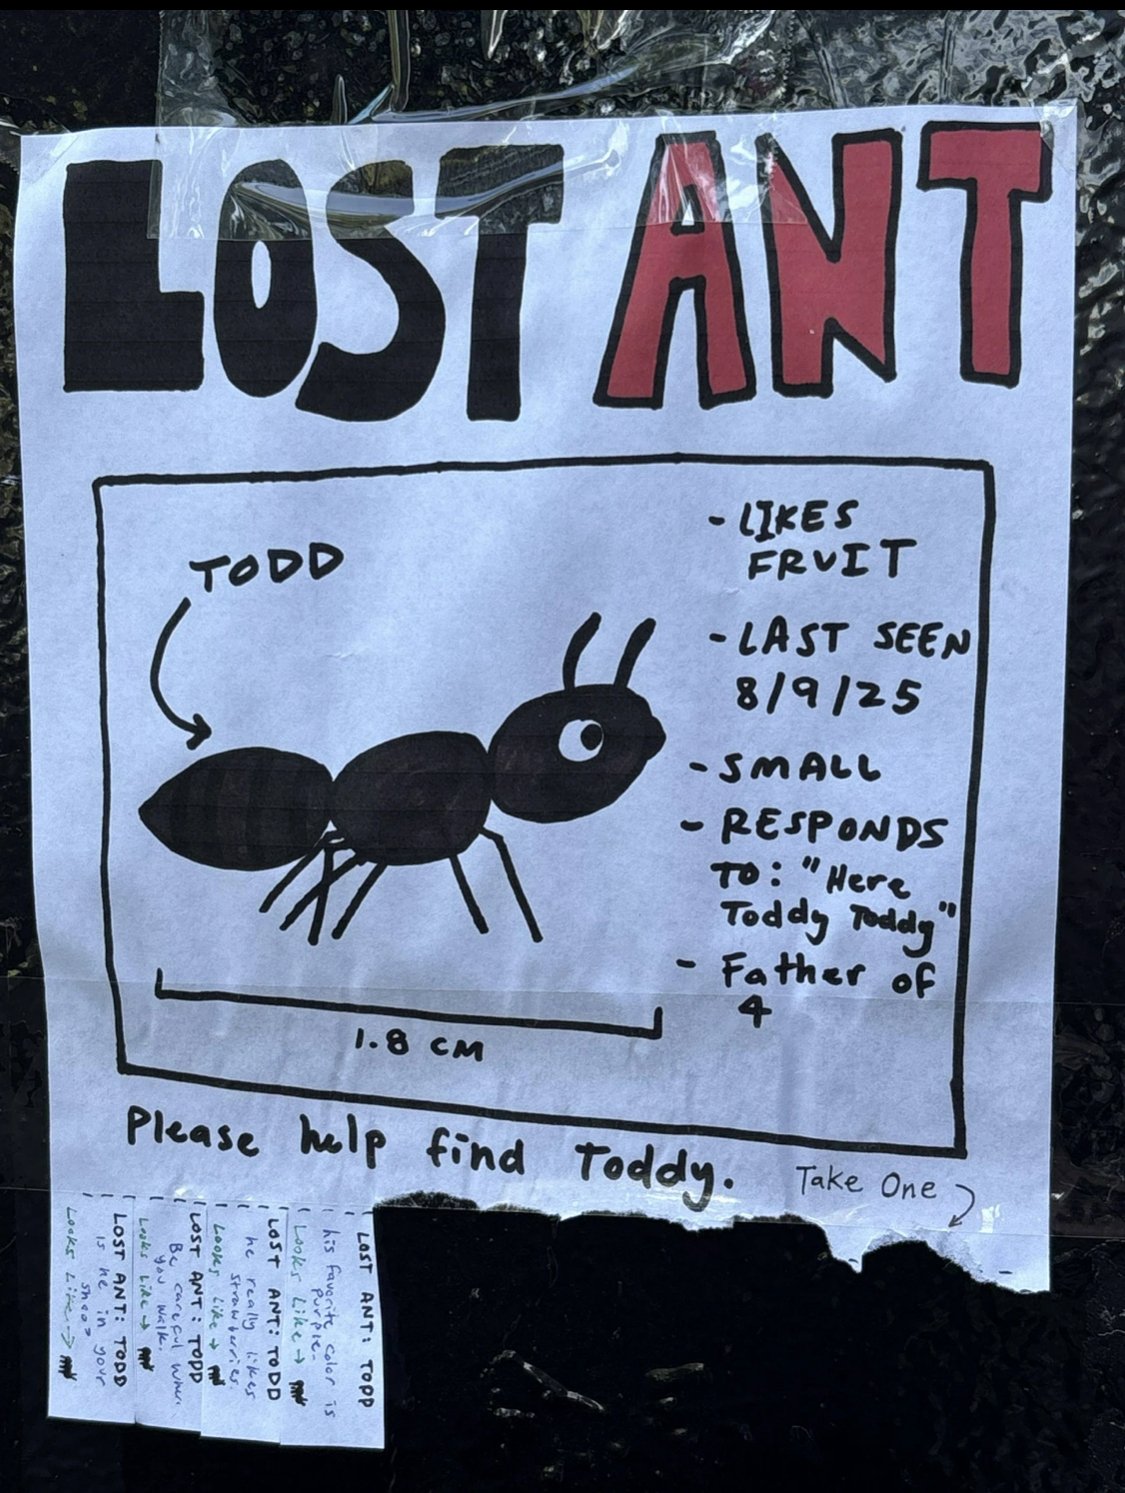 LOST ANT
TODD
- LIKES
FRUIT
- LAST SEEN
8/9/25
- SMALL
- RESPONDS
TO: "Here
Toddy Toddy"
- Father of
4
1.8 CM
Please help find Toddy.
Take One
LOST ANT: TODD
is he in your
shoe?
Looks Like →
LOST ANT: TODD
Be careful when
you walk.
Looks Like →
LOST ANT: TODD
he really likes
strawberries.
Looks Like →
LOST ANT: TODD
his favorite color is
purple.
Looks Like →